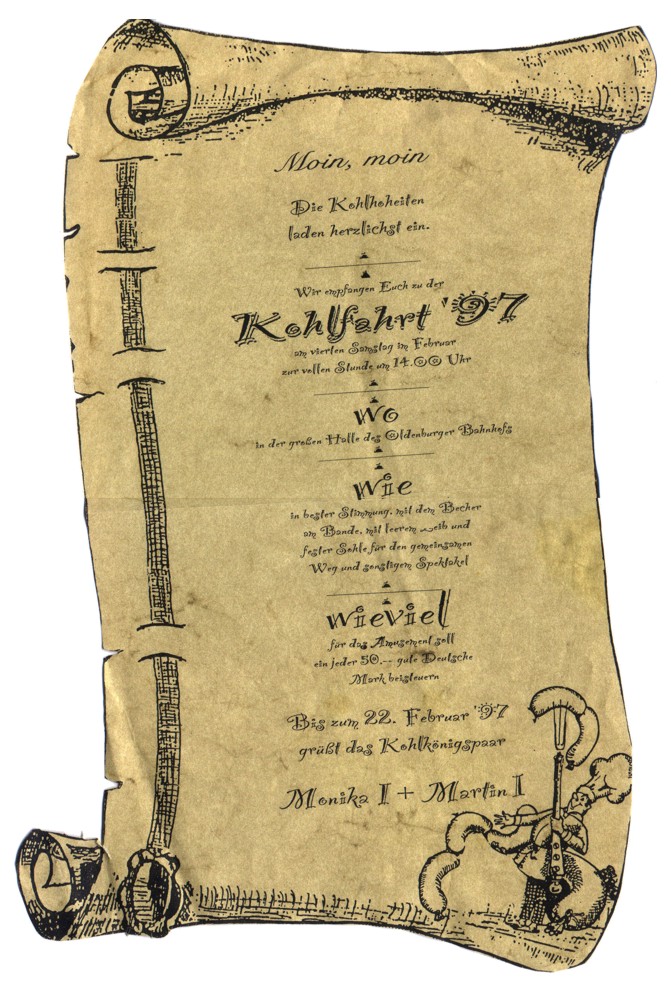 Moin, moin
Die Kohlhoheiten
laden herzlichst ein.
Wir empfangen Euch zu der
Kohlfahrt '97
am vierten Samstag im Februar
zur vollen Stunde um 14.00 Uhr
wo
in der großen Halle des Oldenburger Bahnhofs
wie
in bester Stimmung, mit dem Becher
am Bande, mit leerem Leib und
fester Sohle für den gemeinsamen
Weg und sonstigem Spektakel
wieviel
für das Amusement soll
ein jeder 50.-- gute Deutsche
Mark beisteuern
Bis zum 22. Februar '97
grüßt das Kohlkönigspaar
Monika I + Martin I